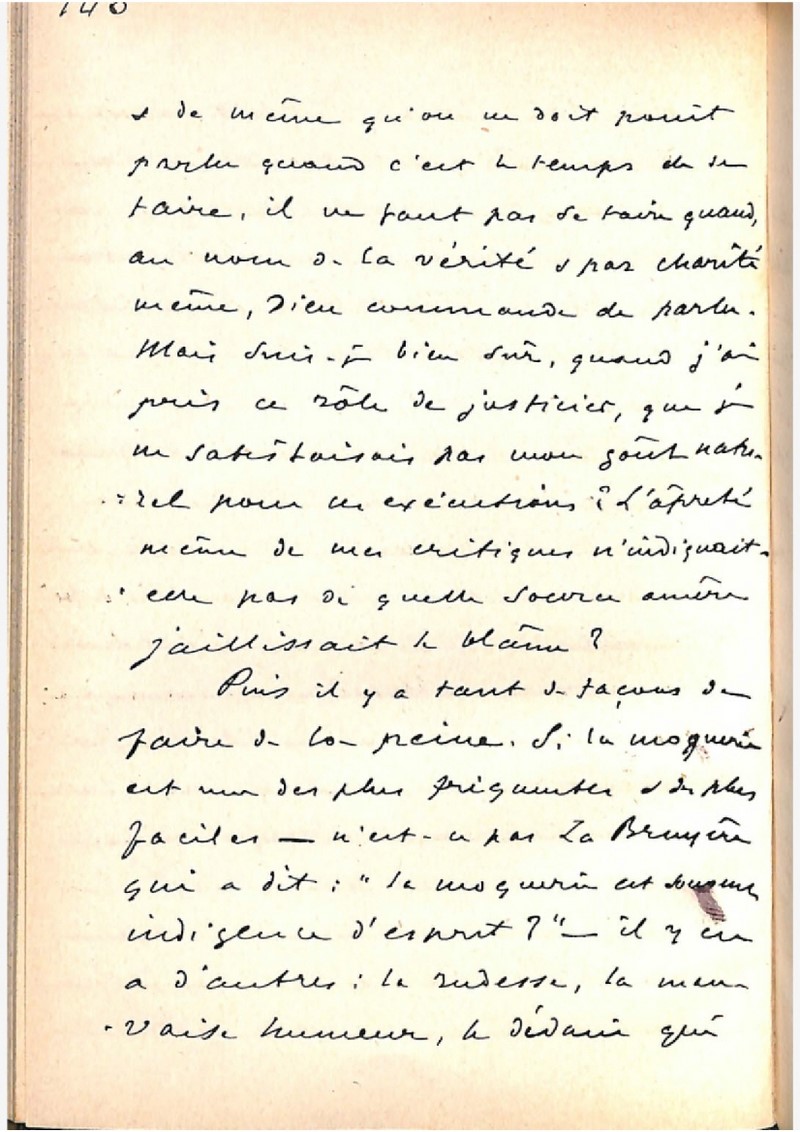 148
& de même qu'on ne doit point
parler quand c'est le temps de se
taire, il ne faut pas se taire quand,
au nom de la vérité & par charité
même, Dieu commande de parler.
Mais suis-je bien sûr, quand j'ai
pris ce rôle de justicier, que je
ne satisfaisais pas mon goût natu-
-rel pour ces exécutions ? L'âpreté
même de mes critiques n'indiquait-
elle pas de quelle source amère
jaillissait le blâme ?
Puis il y a tant de façons de
faire de la peine. Si la moquerie
est une des plus fréquentes & des plus
faciles — n'est-ce pas La Bruyère
qui a dit : "la moquerie est souvent
indigence d'esprit ?" — il y en
a d'autres : la rudesse, la mau-
-vaise humeur, le dédain qui